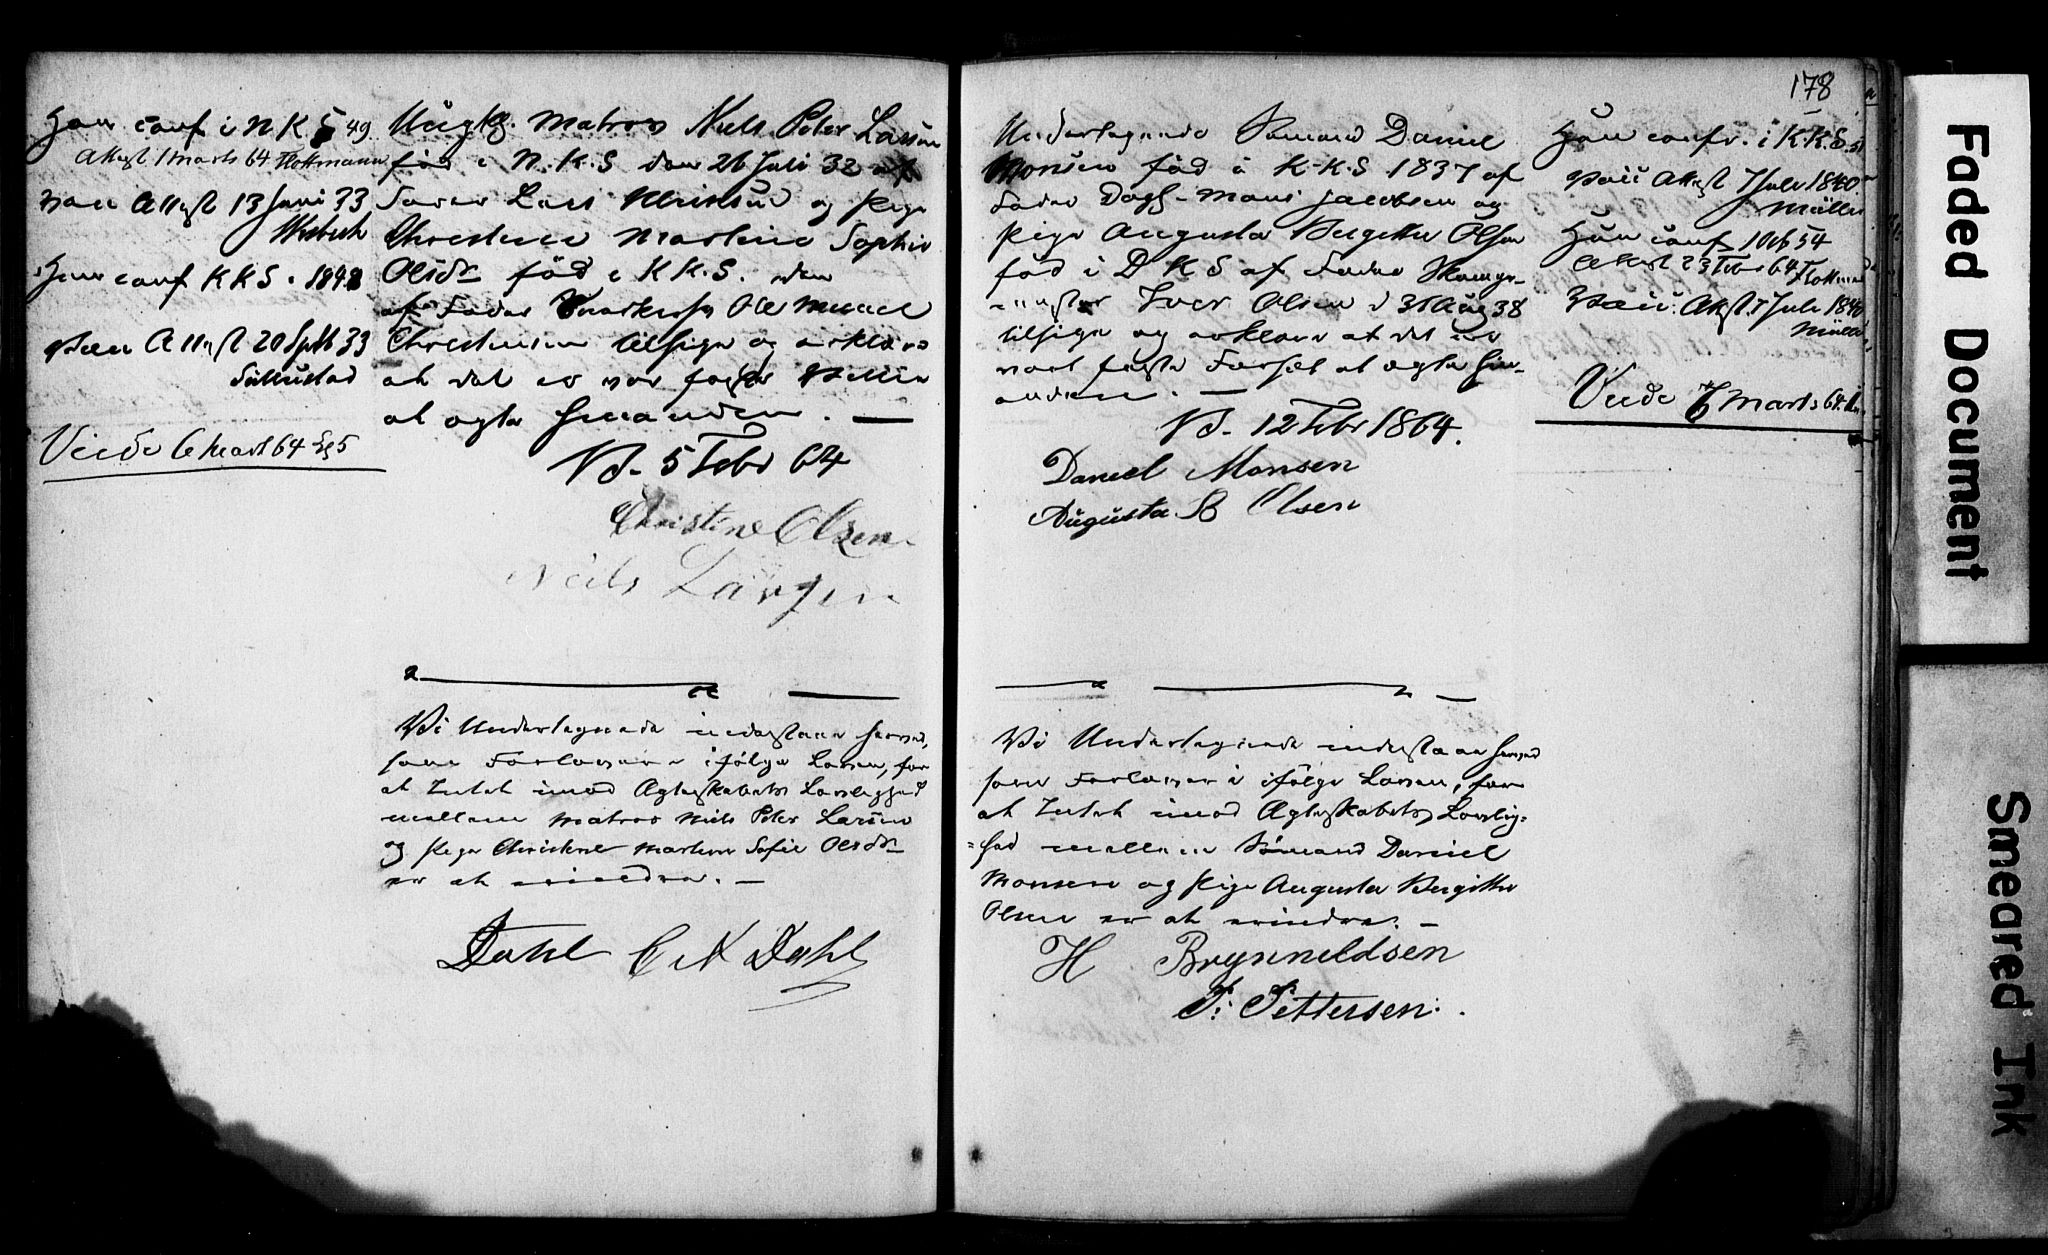 Han conf i N K S 49
Attest 1 Marts 64 Flottmann
vacc Attest 13 Juni 33
Hun conf K K S. 1848
vacc Attest 20 Septb 33
Viede 6 Mart 64
Ungk. Matros Niels Peter Larsen
fød i N. K. S den 26 Juli 32 af
Fader Lars og Pige
Christine Martine Sophie
Olsdr fød i K K. S. den
af Fader Ole
Christensen tilsige og erklære
at det er vor faste Villie
at ægte hinanden. —
5 Febr 64
Christine Olsen
Niels Larsen
Vi Undertegnede indestaae herved,
som Forlovere ifølge Loven, for
at Intet imod Ægteskabets Lovlighed
mellem Matros Niels Peter Larsen
og Pige Christine Martine Sofie Olsdr
er at erindre. —
Dahl Dahl
178
Undertegnede Sømand Daniel
Monsen fød i K-K-S 1837 af
Fader Mons Jacobsen og
Pige Augusta Bergitte Olsen
fød i D K S af Fader
Iver Olsen d 31 Aug 38
tilsige og erklære at det er
vort faste Forsæt at ægte hin-
anden. —
12 Febr 1864.
Daniel Monsen
Augusta B Olsen
Vi Undertegnede indestaae herved
som Forlovere i ifølge Loven, for
at Intet imod Ægteskabets Lovlig=
=hed mellem Sømand Daniel
Monsen og Pige Augusta Bergitte
Olsen er at erindre. —
H Brynnildsen
P: Pettersen.
Han confr. i K.K.S.
vacc Attest 7 Juli 1840.
Müller
Hun conf 1 Oct 54
Attest 23 Febr 64
vacc. Attest 7 Juli 1840
Müller
Viede 6 Marts 64
Faded Document
Smeared Ink